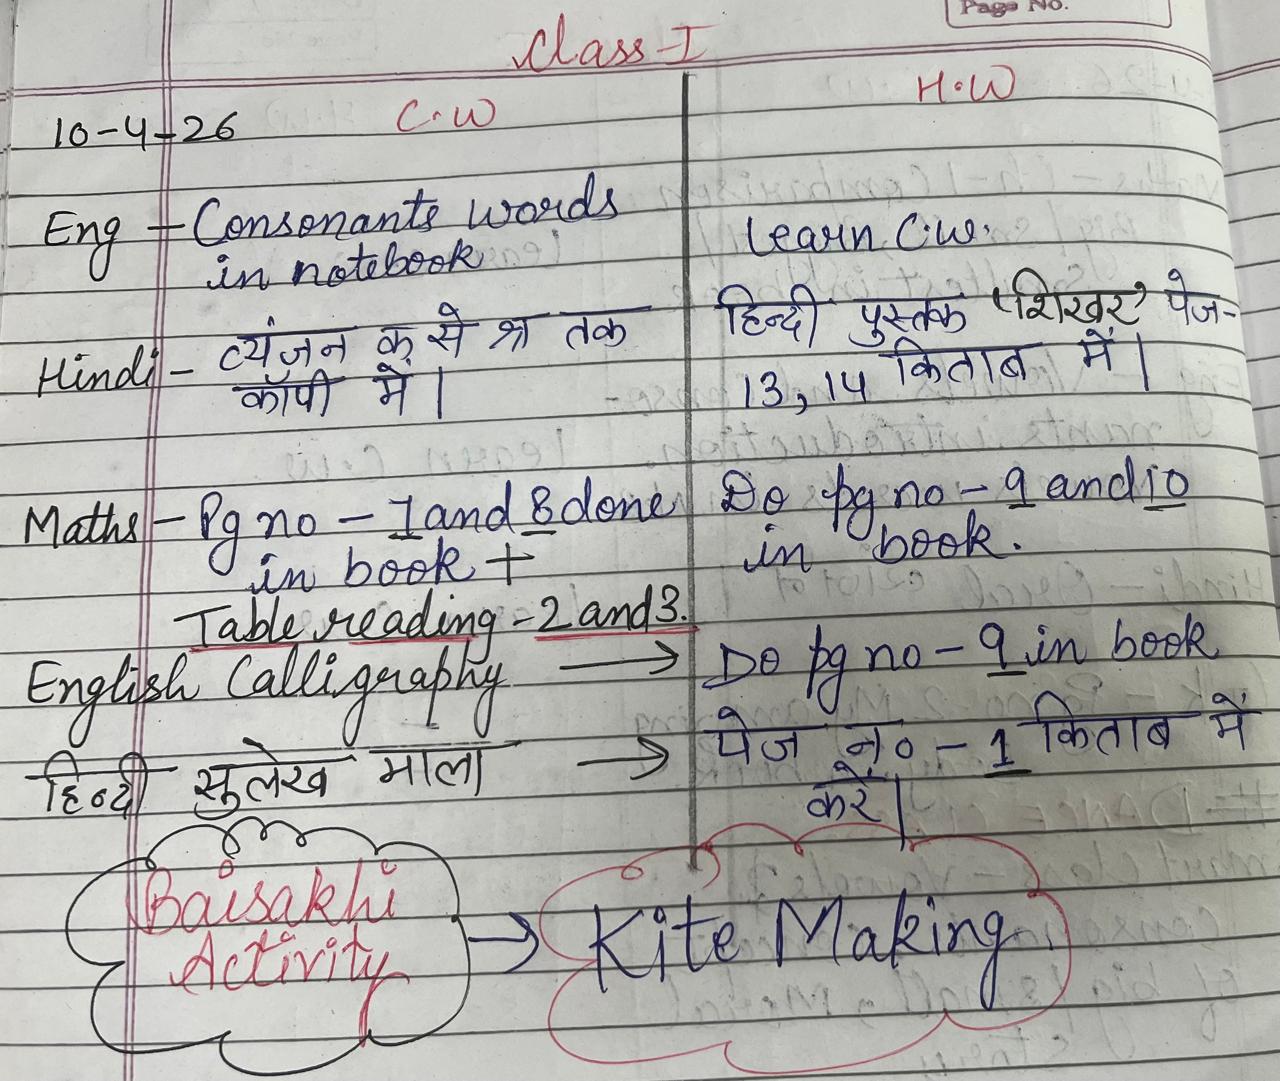 Page No.
Class-I
C.W
H.W
10-4-26
Eng - Consonants words
in notebook
Learn C.W.
Hindi - व्यंजन क से श्र तक
कॉपी में।
हिन्दी पुस्तक 'शिखर' पेज-
13, 14 किताब में।
Maths - Pg no - 7 and 8 done
in book +
Table reading - 2 and 3.
Do pg no - 9 and 10
in book.
English Calligraphy → Do pg no - 9 in book
हिन्दी सुलेख माला → पेज नं० - 1 किताब में
करें।
Baisakhi
Activity
→ Kite Making